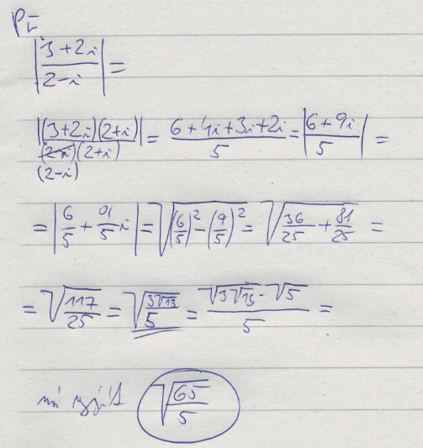 Př
|3+2i / 2-i| =
|(3+2i)(2+i) / (2-i)(2+i)| = 6+4i+3i+2i / 5 = |6+9i / 5| =
(2-i)
= |6/5 + 9/5 i| = √((6/5)² - (9/5)²) = √(36/25 + 81/25) =
= √(117/25) = √(3√13 / 5) = √3√13 · √5 / 5 =
má vyjít √(65/5)